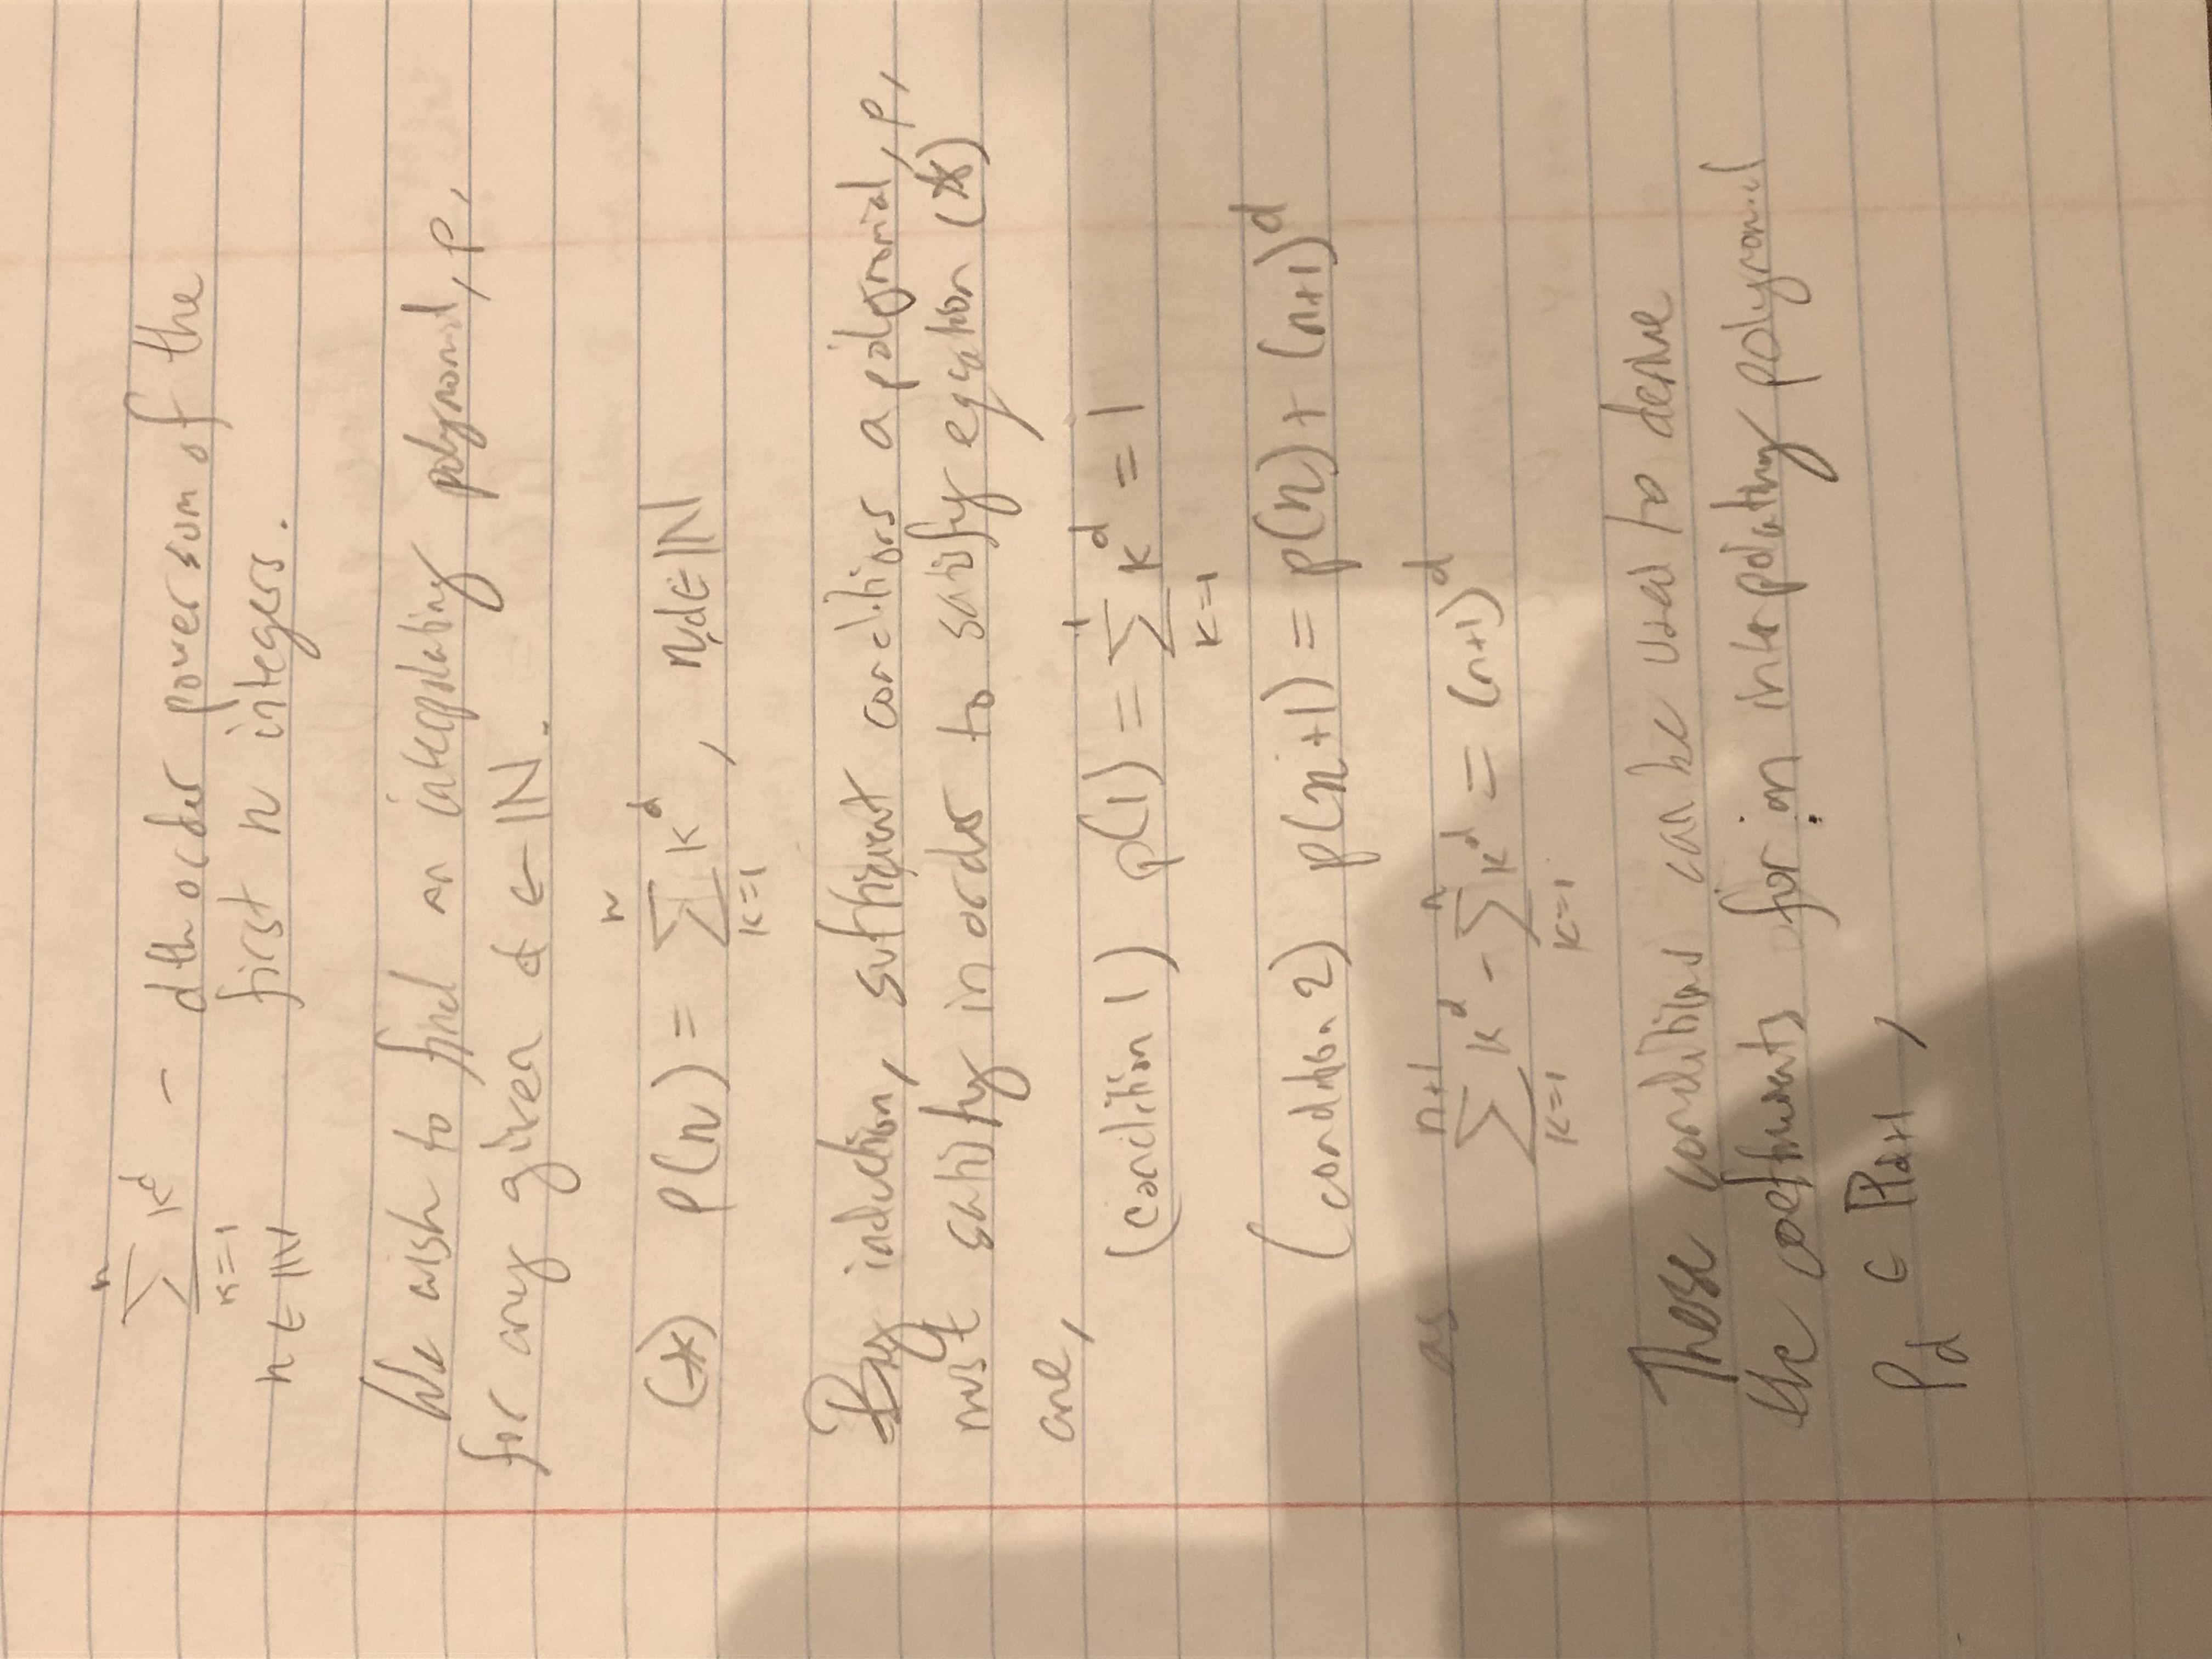 n
∑ k^d - dth order power sum of the
k=1
n ∈ ℕ first n integers.
We wish to find an interpolating polynomial, p,
for any given d ∈ ℕ.
(*) p(n) = ∑_{k=1}^{n} k^d, n,d ∈ ℕ
By induction, sufficient conditions a polynomial, p,
must satisfy in order to satisfy equation (*)
are,
(condition 1) p(1) = ∑_{k=1}^{1} k^d = 1
(condition 2) p(n+1) = p(n) + (n+1)^d
as ∑_{k=1}^{n+1} k^d - ∑_{k=1}^{n} k^d = (n+1)^d
These conditions can be used to derive
the coefficients for an interpolating polynomial
P_d ∈ ℙ_{d+1},